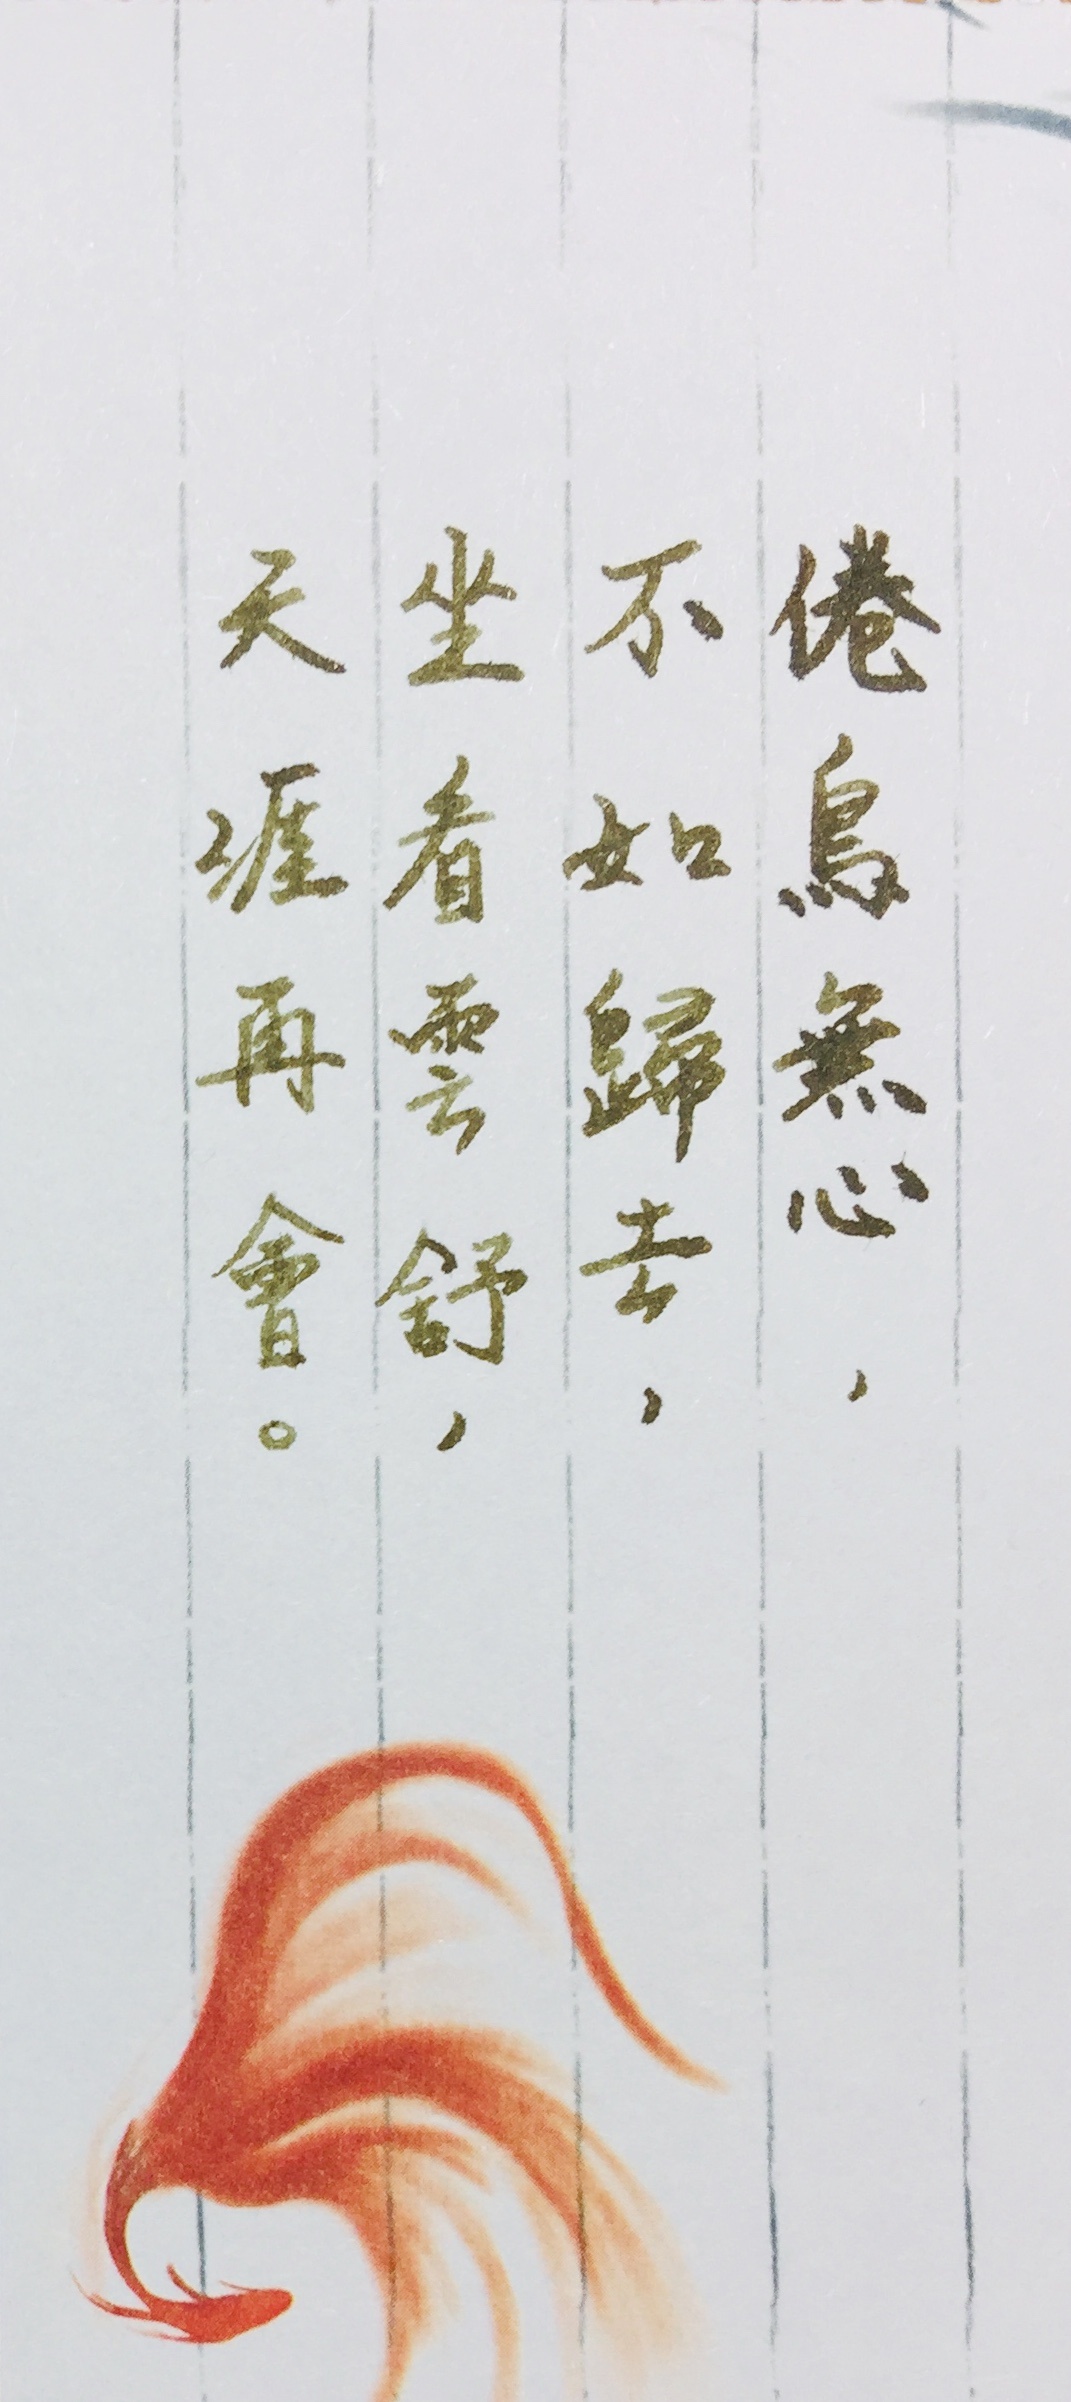 倦鳥無心，
不如歸去，
坐看雲舒，
天涯再會。